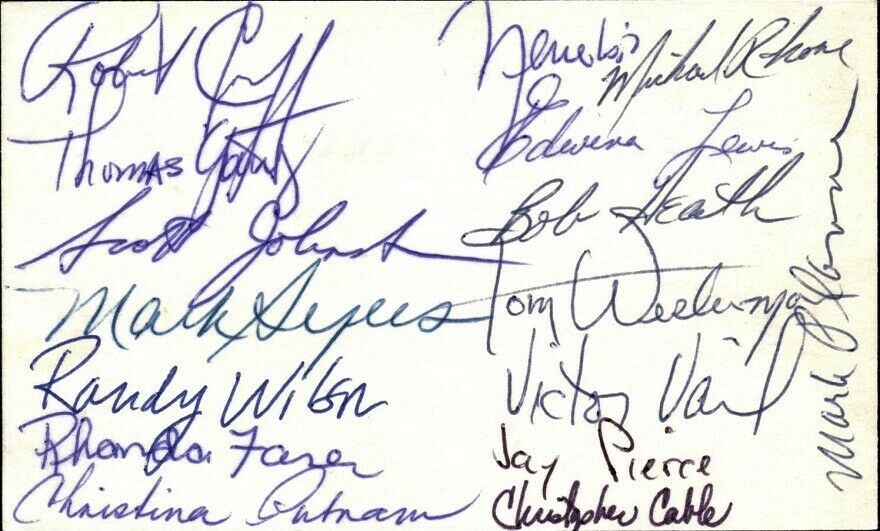 Robert Cuff
Thomas
Scott Johnson
Mark Syers
Randy Wilson
Rhonda Farer
Christina Putnam
Michael Rhone
Edwina Lewis
Bob Heath
Tom Westerman
Victor Vail
Jay Pierce
Christopher Cable
Mark P.